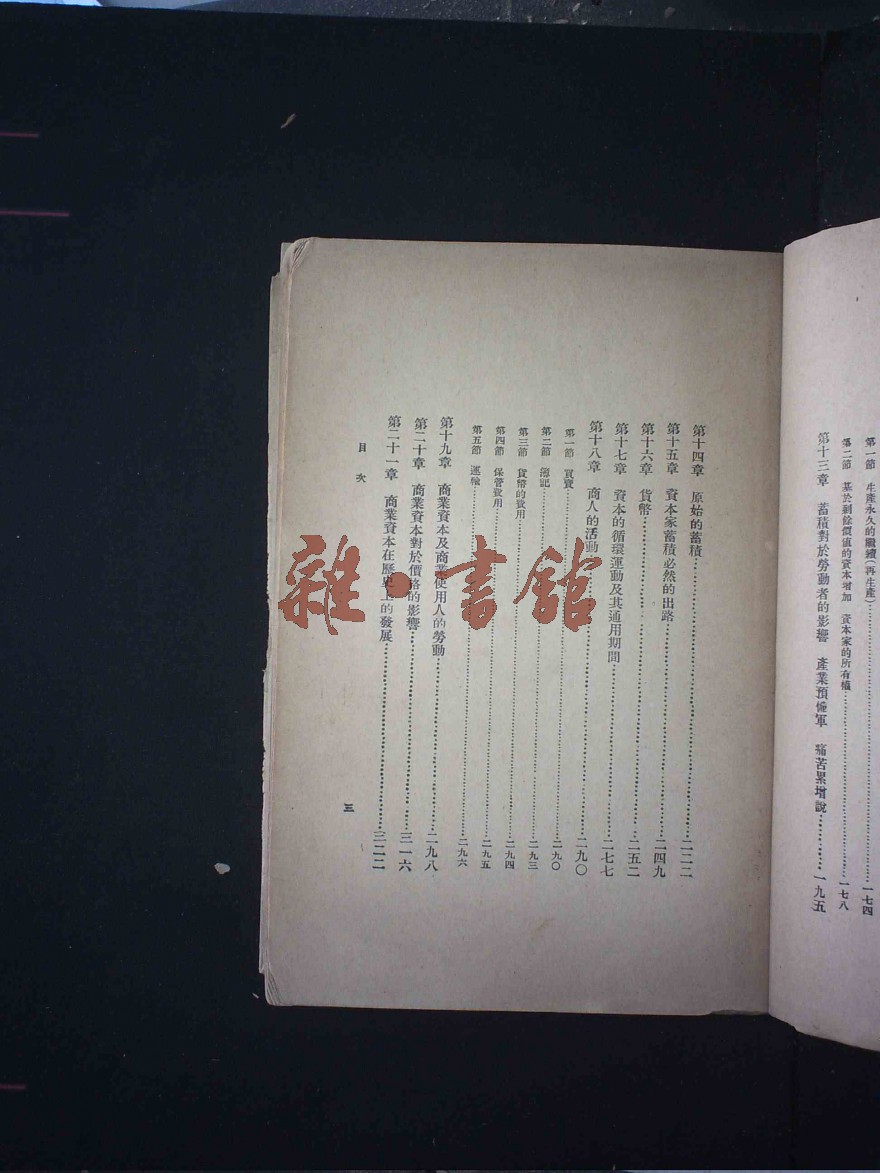 第一節　生產永久的繼續(再生產)……一七四
第二節　基於剩餘價值的資本增加　資本家的所有權……一七八
第十三章　蓄積對於勞動者的影響　產業預備軍　痛苦累增說……一九五
第十四章　原始的蓄積……二二二
第十五章　資本家蓄積必然的出路……二四九
第十六章　貨幣……二五二
第十七章　資本的循環運動及其通用期間……二七七
第十八章　商人的活動……二九〇
第一節　買賣……二九〇
第二節　簿記……二九三
第三節　貨幣的費用……二九四
第四節　保管費用……二九五
第五節　運輸……二九六
第十九章　商業資本及商業使用人的勞動……二九八
第二十章　商業資本對於價格的影響……三一六
第二十一章　商業資本在歷史上的發展……三二二
目次
三
雜·書館